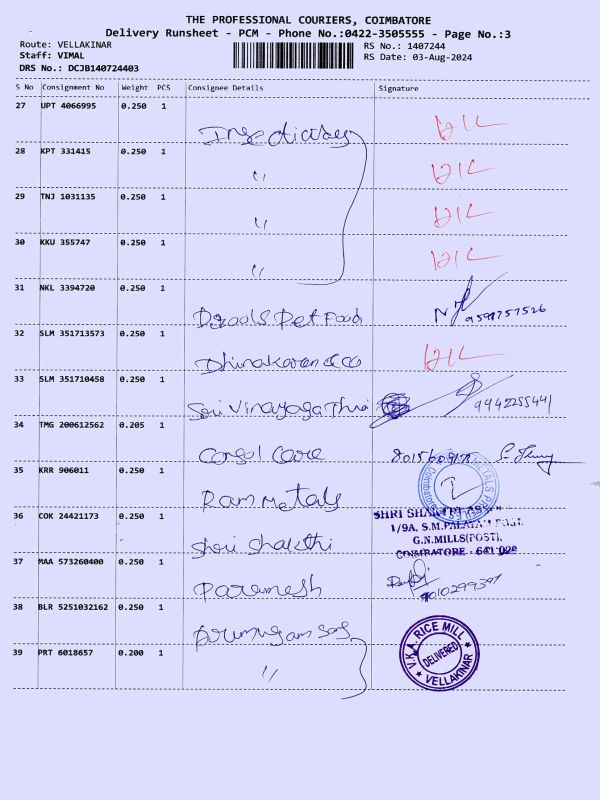 THE PROFESSIONAL COURIERS, COIMBATORE
Delivery Runsheet - PCM - Phone No.:0422-3505555 - Page No.:3
Route: VELLAKINAR
RS No.: 1407244
Staff: VIMAL
RS Date: 03-Aug-2024
DRS No.: DCJB140724403
S No Consignment No Weight PCS Consignee Details Signature
27 UPT 4066995 0.250 1
28 KPT 331415 0.250 1
"
29 TNJ 1031135 0.250 1
"
30 KKU 355747 0.250 1
"
31 NKL 3394720 0.250 1
Drools Pet Food 9594757526
32 SLM 351713573 0.250 1
Dhinakaran & co
33 SLM 351710458 0.250 1
Sri Vinayaga 9942255441
34 TMG 200612562 0.205 1
Care
35 KRR 906011 0.250 1
Ram Metals
36 COK 24421173 0.250 1
SHRI
1/9A, S.M.PALAYAM
G.N.MILLS(POST),
COIMBATORE - 641 029
Shri Shakthi
37 MAA 573260400 0.250 1
Paramesh
38 BLR 5251032162 0.250 1
Arumugam sons
V.K.A. RICE MILL
DELIVERED
VELLAKINAR
39 PRT 6018657 0.200 1
"